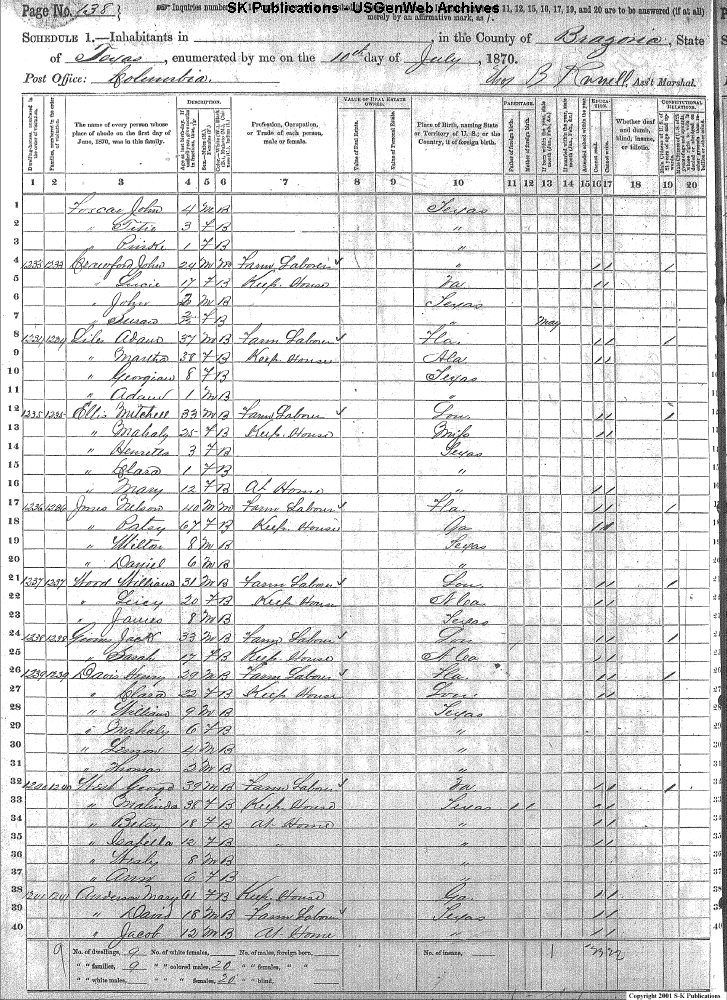 Page No. 138
SK Publications USGenWeb Archives
Inquiries numbered 11, 12, 15, 16, 17, 19, and 20 are to be answered (if at all)
merely by an affirmative mark, as /.
SCHEDULE 1.—Inhabitants in , in the County of Brazoria, State
of Texas, enumerated by me on the 10th day of July, 1870.
Post Office: Columbia. Ass't Marshal.
DESCRIPTION. VALUE OF REAL ESTATE OWNED. PARENTAGE. EDUCATION. CONSTITUTIONAL RELATIONS.
Dwelling-houses, numbered in the order of visitation.
Families, numbered in the order of visitation.
The name of every person whose place of abode on the first day of June, 1870, was in this family.
Profession, Occupation, or Trade of each person, male or female.
Value of Real Estate.
Value of Personal Estate.
Place of Birth, naming State or Territory of U. S.; or the Country, if of foreign birth.
Father of foreign birth.
Mother of foreign birth.
Attended school within the year.
Cannot read.
Cannot write.
Whether deaf and dumb, blind, insane, or idiotic.
1 2 3 4 5 6 7 8 9 10 11 12 13 14 15 16 17 18 19 20
1 John 4 M B Texas
2 " 3 F B "
3 " 1 F B "
4 1233 1233 Crawford John 24 M Farm Laborer " / / /
5 " Lucie 17 F B Keep. House Va / /
6 " John M B Texas
7 " Susan F B " May
8 1234 1234 Liles Adam 37 M B Farm Laborer Fla. / / /
9 " Martha 38 F B Keep. House Ala / /
10 " Georgian 8 F B Texas
11 " Adam 1 M B "
12 1235 1235 Ellis Mitchell 33 M B Farm Labour Lou. / / /
13 " Mahaly 25 F B Keep. House Miss / /
14 " Henrietta 3 F B Texas
15 " Clara 1 F B "
16 " Mary 12 F B At Home " / /
17 1236 1236 Jones Nelson 40 M Farm Labour Fla. / / /
18 " Patsy 67 F B Keep. House Ga / /
19 " Milton 8 M B Texas
20 " Daniel 6 M B "
21 1237 1237 Wood William 31 M B Farm Labour Lou / / /
22 " Lucy 20 F B Keep House Ala / /
23 " James 8 M B Texas
24 1238 1238 Jack 33 M B Farm Labour Lou / / /
25 " Sarah 17 F B Keep. House Ala / /
26 1239 1239 Davis Henry 29 M B Farm Labour Fla. / / /
27 " Clara 22 F B Keep House Lou. / /
28 " William 9 M B Texas
29 " Mahaly 6 F B "
30 " 4 M B "
31 " Thomas 2 M B "
32 1240 1240 West George 39 M B Farm Labour Va / / /
33 " Malinda 38 F B Keep House Texas / / / /
34 " Betsy 18 F B At Home " / /
35 " Isabella 12 F B " / /
36 " 8 M B "
37 " Ann 6 F B "
38 1241 1241 Anderson Mary 61 F B Keep. House Ga / /
39 " David 18 M B Farm Labour Texas / /
40 " Jacob 12 M B At Home " / /
9 No. of dwellings, 9 No. of white females, No. of males, foreign born, No. of insane, 1
" " families, 9 " " colored males, 20 " " females, " "
" " white males, " " " females, 20 " " blind,
Copyright 2001 S-K Publications